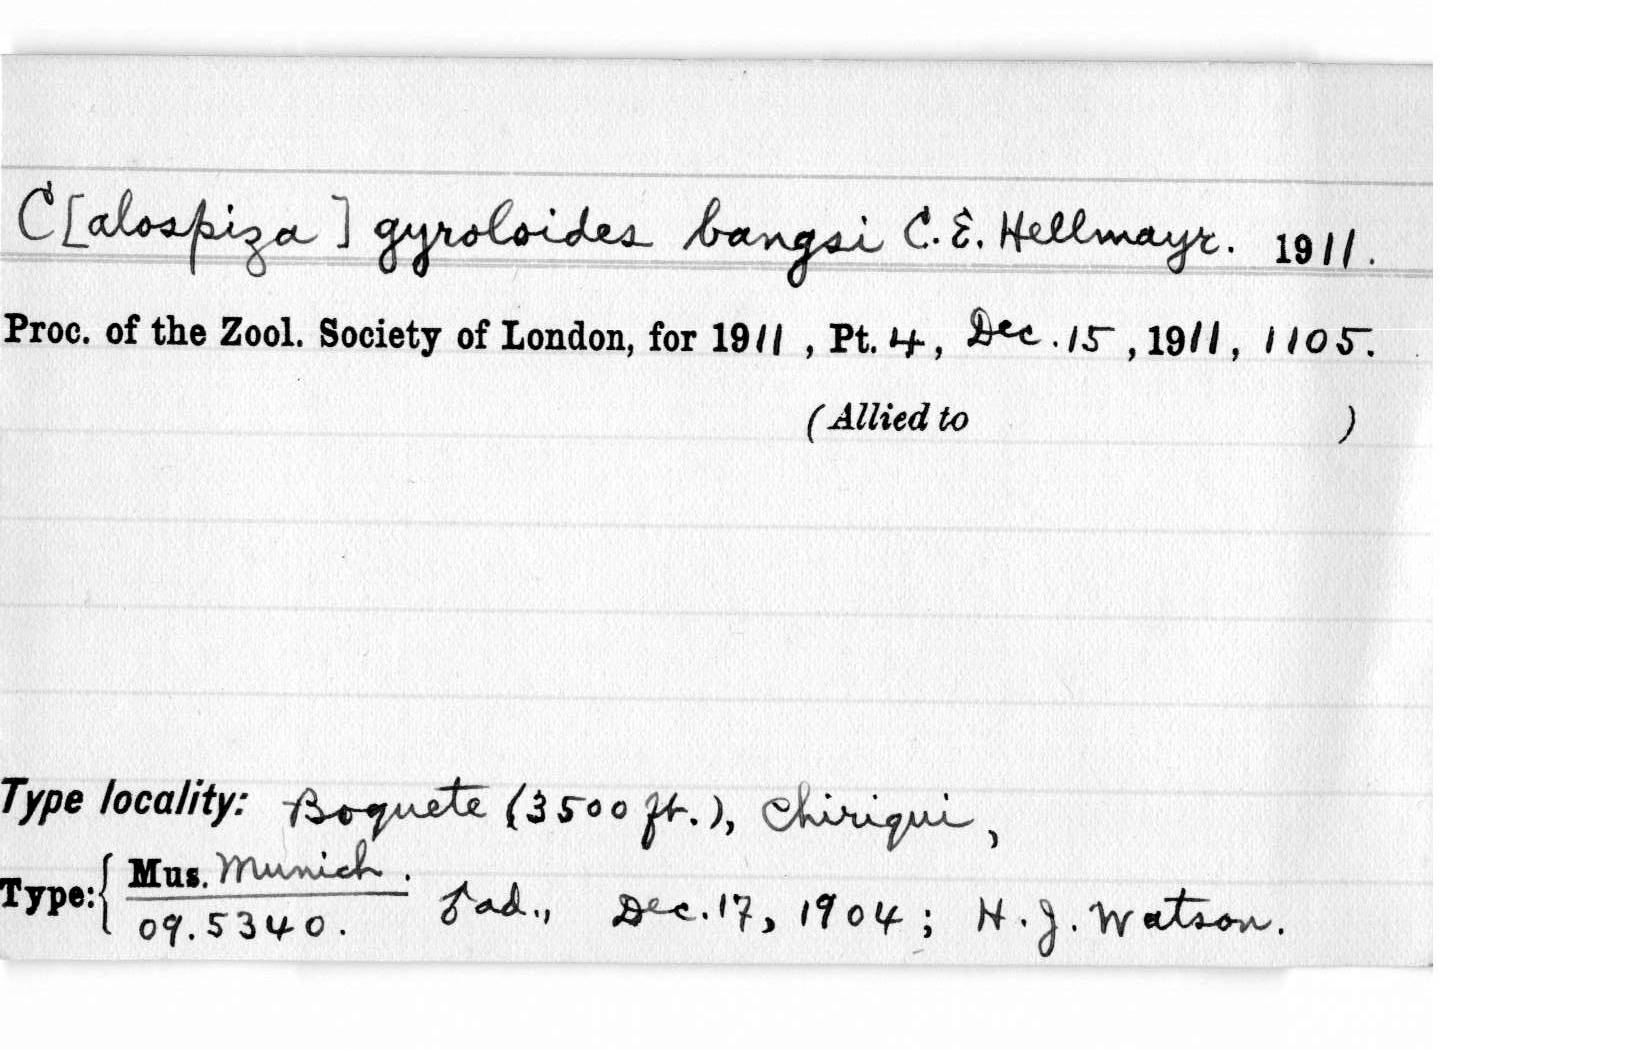 C[alospiza] gyroloides bangsi C. E. Hellmayr. 1911.
Proc. of the Zool. Society of London, for 1911, Pt. 4, Dec. 15, 1911, 1105.
(Allied to )
Type locality: Boquete (3500 ft.), Chiriqui,
Type: { Mus. Munich.
09.5340. f ad., Dec. 17, 1904; H. J. Watson.